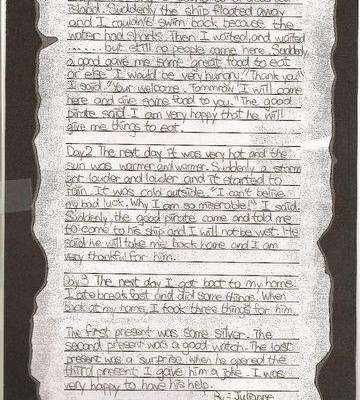 island. Suddenly the ship floated away
and I couldn't swim back because the
water had sharks. Then I waited and waited
...... but still no people came here. Suddenly
a good gave me some great food to eat
or else I would be very hungry. "Thank you"
I said. "Your welcome. Tomorrow I will come
here and give some food to you." The good
pirate said. I am very happy that he will
give me things to eat!
Day 2 The next day it was very hot and the
sun was warmer and warmer. Suddenly a storm
got louder and louder and it started to
rain. It was cold outside. "I can't belive
my bad luck. Why I am so miserable!" I said.
Suddenly the good pirate came and told me
to come to his ship and I will not be wet. He
said he will take me back home and I am
very thankful for him.
Day 3 The next day I got boat to my home.
I ate breakfast and did some things. When
at my home, I took three things for him.
The first present was some silver. The
second present was a good watch. The last
present was a surprise. When he opened the
third present I gave him a joke. I was
very happy to have his help.
By:- Julianne